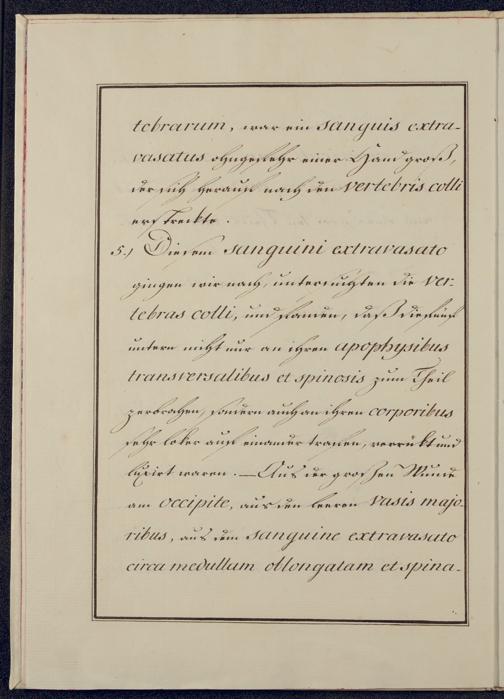 tebrarum, war ein sanguis extra-
vasatus ohngefehr einer Hand groß,
der sich herauf nach den vertebris colli
erstreckte.
5.) Diesem sanguini extravasato
giengen wir nach, untersuchten die ver-
tebras colli, und fanden, daß die fünf
untern nicht nur an ihren apophysibus
transversalibus et spinosis zum Theil
zerbrochen, sondern auch an ihren corporibus
sehr loker auf einander, verrükt und
luxirt waren. — Aus der großen Wunde
am occipite, aus den leeren vasis majo-
ribus, aus dem sanguine extravasato
circa medullam oblongatam et spina-